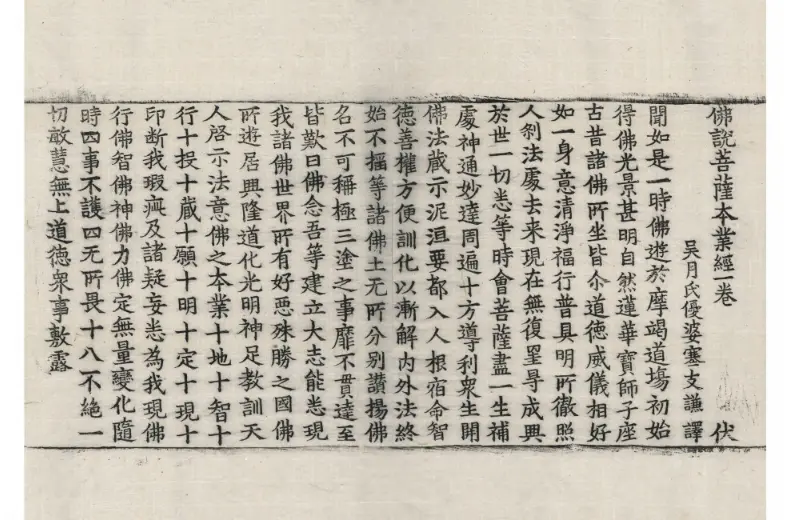 佛說菩薩本業經一卷 伏
吳月氏優婆塞支謙譯
聞如是一時佛遊於摩竭道場初始
得佛光景甚明自然蓮華寶師子座
古昔諸佛所坐皆尒道徳威儀相好
如一身意清淨福行普具明所徹照
人剎法處去来現在無復罣㝵成興
於世一切悉等時會菩薩盡一生補
處神通妙達周遍十方導利衆生開
佛法蔵示泥洹要都入人根宿命智
徳善權方便訓化以漸解内外法終
始不揺等諸佛土无所分别讃揚佛
名不可稱極三塗之事靡不貫達至
皆歎曰佛念吾等建立大志能悉現
我諸佛世界所有好惡殊勝之國佛
所遊居興隆道化光明神足教訓天
人啓示法意佛之本業十地十智十
行十投十蔵十願十明十定十現十
印断我瑕疵及諸疑妄悉為我現佛
行佛智佛神佛力佛定無量變化隨
時四事不護四无所畏十八不絶一
切敏慧無上道徳衆事敷露